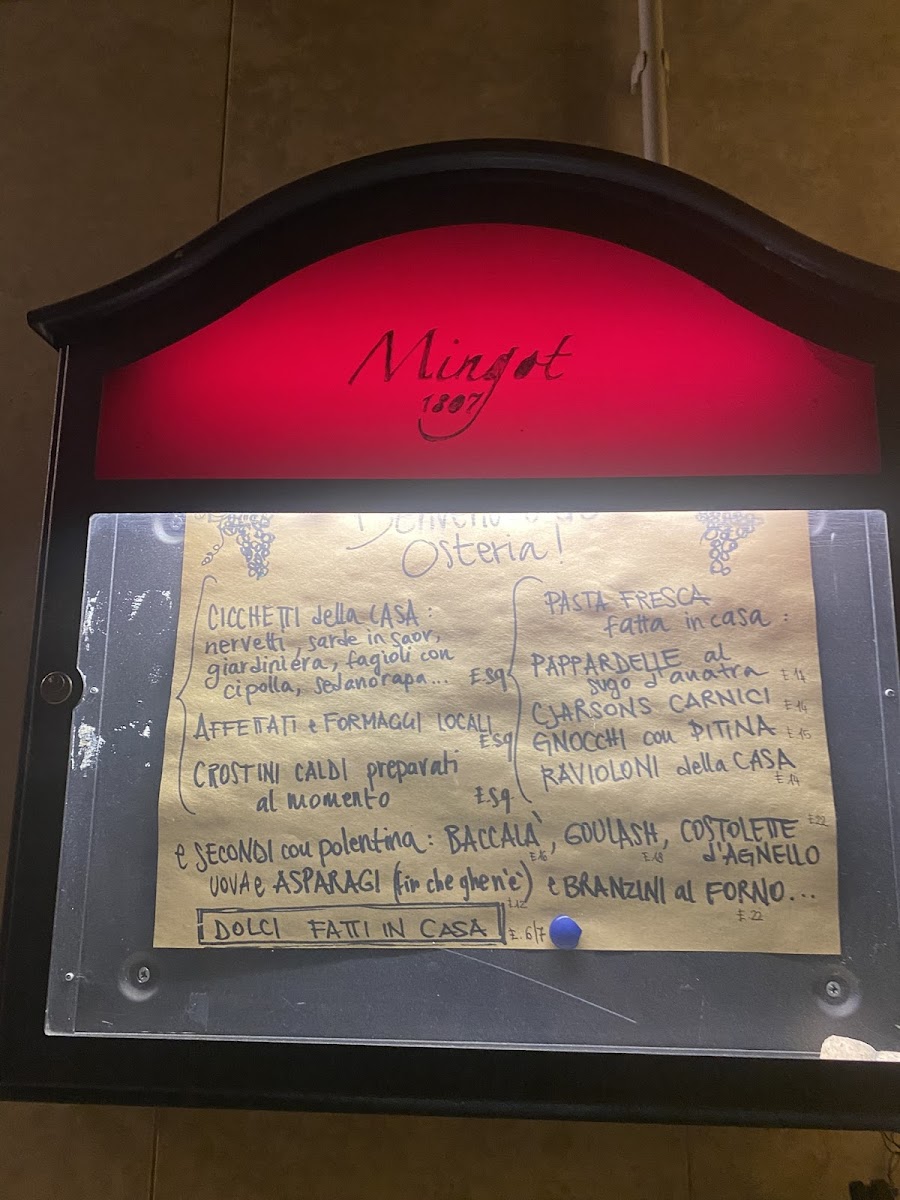 Mingot
1807
Osteria!
CICCHETTI della CASA:
nervetti, sarde in saor,
giardiniera, fagioli con
cipolla, sedanorapa...
AFFETTATI e FORMAGGI LOCALI
CROSTINI CALDI preparati
al momento
PASTA FRESCA
fatta in casa:
PAPPARDELLE al
sugo d'anatra
CJARSONS CARNICI
GNOCCHI con PITINA €15
RAVIOLONI della CASA
€14
e SECONDI con polentina: BACCALÀ, GOULASH, COSTOLETTE €22
d'AGNELLO
UOVA e ASPARAGI (fin che ghen'è) e BRANZINI al FORNO...
€12
€.22
DOLCI FATTI IN CASA €.6/7